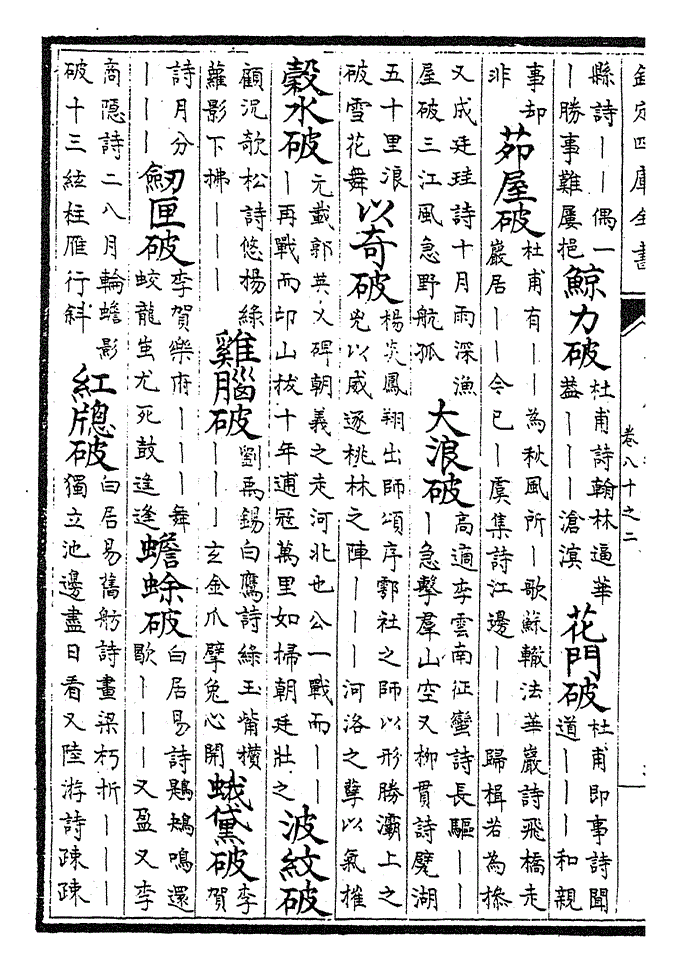 欽定四庫全書
卷八十之二
縣詩｜｜偶一
｜勝事難屢挹
鯨力破
杜甫詩翰林逼華
蓋｜｜｜滄溟
花門破
杜甫即事詩聞
道｜｜｜和親
事却
非
茆屋破
杜甫有｜｜為秋風所｜歌蘇轍法華巖詩飛橋走
巖居｜｜今已｜虞集詩江邊｜｜｜歸楫若為摻
又成廷珪詩十月雨深漁
屋破三江風急野航孤
大浪破
高適李雲南征蠻詩長驅｜｜
｜急擊羣山空又柳貫詩甓湖
五十里浪
破雪花舞
以奇破
楊炎鳳翔出師頌序鄠社之師以形勝灞上之
兕以威逐桃林之陣｜｜｜河洛之孽以氣摧
穀水破
元載郭英乂碑朝義之走河北也公一戰而｜｜
｜再戰而邙山拔十年逋冦萬里如掃朝廷壯之
波紋破
顧況歌松詩悠揚綠
蘿影下拂｜｜｜
雞腦破
劉禹錫白鷹詩綠玉觜攢
｜｜｜玄金爪擘兔心開
蛾黛破
李
賀
詩月分
｜｜｜
劒匣破
李賀樂府｜｜｜舞
蛟龍蚩尤死鼓逢逢
蟾蜍破
白居易詩鶗鴂鳴還
歇｜｜｜又盈又李
商隱詩二八月輪蟾影
破十三絃柱雁行斜
紅牕破
白居易舊舫詩畫梁朽折｜｜
｜獨立池邊盡日看又陸游詩疎疎